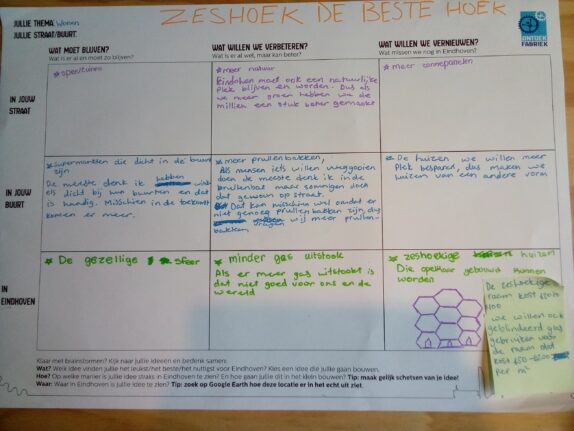 ZESHOEK DE BESTE HOEK
JULLIE THEMA: Wonen
JULLIE STRAAT/BUURT:
ONTDEK
FABRIEK
WAT MOET BLIJVEN?
Wat is er al en moet zo blijven?
WAT WILLEN WE VERBETEREN?
Wat is er al wel, maar kan beter?
WAT WILLEN WE VERNIEUWEN?
Wat missen we nog in Eindhoven?
IN JOUW
STRAAT
* open tuinen
* meer natuur
Eindhoven moet ook een natuurlijke
plek blijven en worden. Dus als
we meer groen hebben we de
millieu een stuk beter gemaakt
* meer zonnepanelen
IN JOUW
BUURT
* supermarkten die dicht in de buurt
zijn
De meeste denk ik hebben
als dicht bij hun buurten en dat
is handig. Misschien in de toekomst
komen er meer.
* meer prullenbakken,
Als mensen iets willen weggooien
doen de meeste denk ik in de
prullenbak maar sommigen doen
dat gewoon op straat.
Dat kan misschien wel omdat er
niet genoeg prullenbakken zijn, dus
vragen wij meer prullen-
bakken
* De huizen we willen meer
plek besparen, dus maken we
huizen van een andere vorm
IN
EINDHOVEN
* De gezellige sfeer
* minder gas uitstook
Als er meer gas uitstookt is
dat niet goed voor ons en de
wereld
* zeshoekige huizen
Die opelkaar gebouwd kunnen
worden
De zeshoekige
raam kost
we willen ook
geblindeerd glas
gebruiken voor
de raam dat
kost
per m²
Klaar met brainstormen? Kijk naar jullie ideeën en bedenk samen:
Wat? Welk idee vinden jullie het leukst/het beste/het nuttigst voor Eindhoven? Kies een idee die jullie gaan bouwen.
Hoe? Op welke manier is jullie idee straks in Eindhoven te zien? En hoe gaan jullie dit in het klein bouwen? Tip: maak gelijk schetsen van je idee!
Waar: Waar in Eindhoven is jullie idee te zien? Tip: zoek op Google Earth hoe deze locatie er in het echt uit ziet.